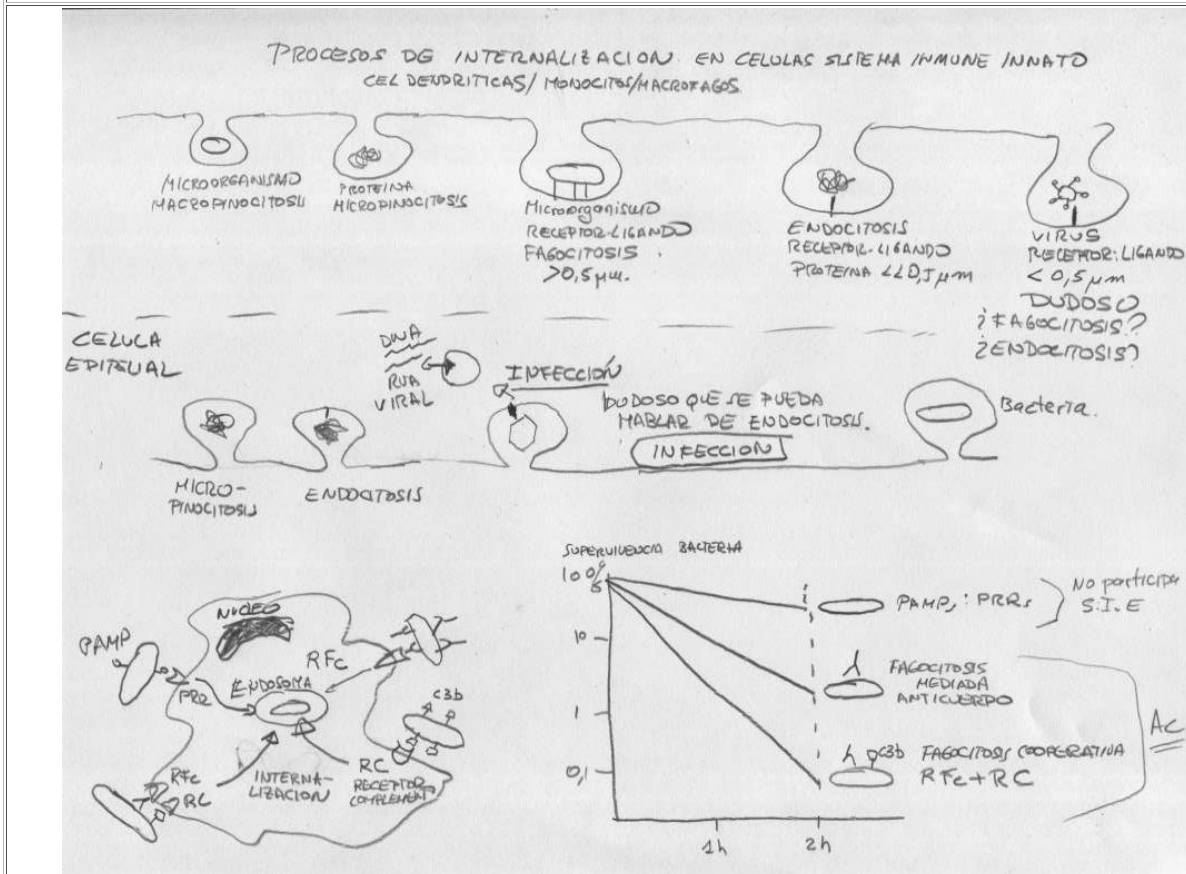 PROCESOS DE INTERNALIZACION EN CELULAS SISTEMA INMUNE INNATO
CEL DENDRITICAS/MONOCITOS/MACROFAGOS
MICROORGANISMO
MACROPINOCITOSIS
PROTEINA
MICROPINOCITOSIS
Microorganismo
RECEPTOR-LIGANDO
FAGOCITOSIS
>0,5 μm.
ENDOCITOSIS
RECEPTOR-LIGANDO
PROTEINA <<0,5 μm
VIRUS
RECEPTOR:LIGANDO
<0,5 μm
DUDOSO
¿FAGOCITOSIS?
¿ENDOCITOSIS?
CELULA
EPITELIAL
DNA
RNA
VIRAL
INFECCIÓN
DUDOSO QUE SE PUEDA
HABLAR DE ENDOCITOSIS.
INFECCION
Bacteria.
MICRO-
PINOCITOSIS
ENDOCITOSIS
NUCLEO
PAMP
PRR
ENDOSOMA
RFc
C3b
RFc
RC
INTERNA-
LIZACION
RC
RECEPTOR
COMPLEMENT
SUPERVIVENCIA BACTERIA
100%
10
1
0,1
1h
2h
PAMPs : PRRs
No participa
S.I.E
FAGOCITOSIS
MEDIADA
ANTICUERPO
C3b
FAGOCITOSIS COOPERATIVA
RFc+RC
Ac